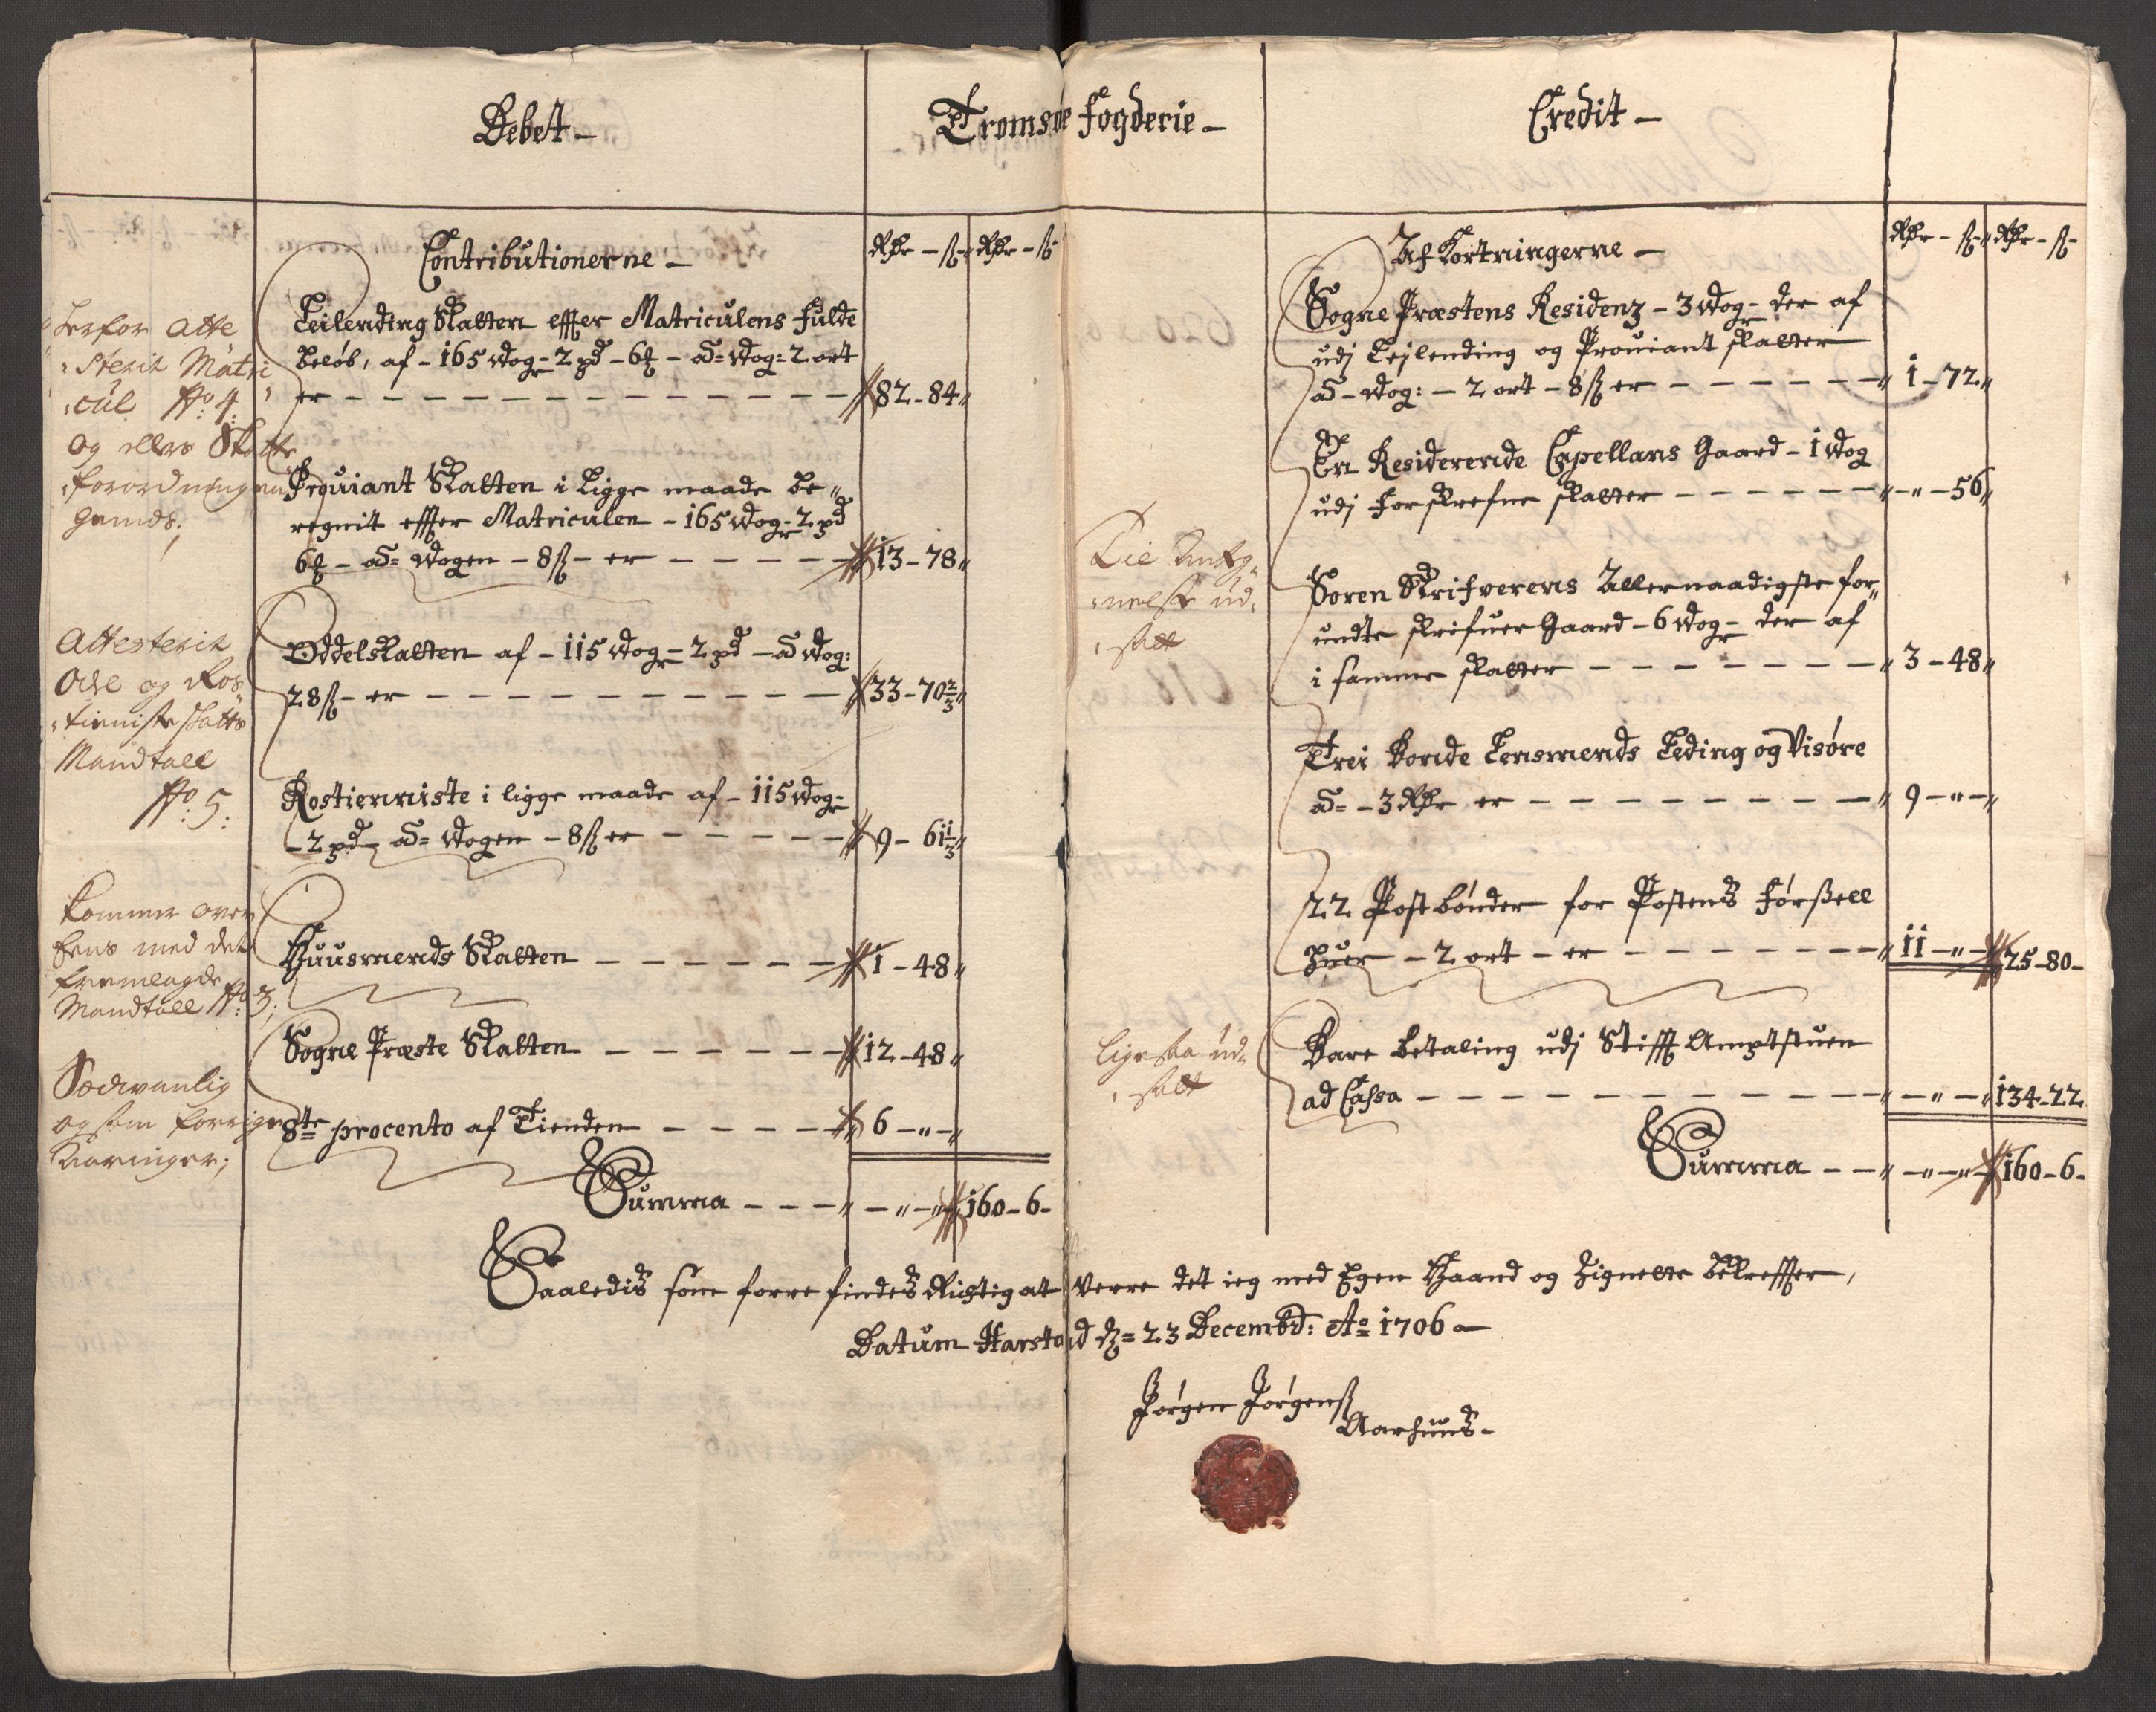 Debet –
Tromsøe fogderie –
Credit –
Contributionerne –
Rdr – ß – Rdr – ß
Leilending Skatten effter Matriculens fulde
beløb, af – 165 Wog – 2 pd – 6 – ad Wog: 2 ort
er – – – 82 – 84
Prouiant Skatten i ligge maade be„
regnit effter Matriculen – 165 Wog – 2 pd
6 – ad Wogen – 8 ß – er – – – 13 – 78
Oddelskatten af – 115 Wog – 2 pd – ad Wog:
28 ß – er – – – 33 – 70 2/3
Rostienniste i ligge maade af – 115 Wog
– 2 pd – ad Wogen – 8 ß er – – – 9 – 61 1/3
Huusmends Skatten – – – 1 – 48
Sogne Præste Skatten – – – 12 – 48
8te procento af Tienden – – – 6 – „ –
Summa – – – „ – „ – 160 – 6 –
atte
sterit Matri
cul No 4:
og ellers Skatte
forordningens
Attesterit
Ode og Ros
tieniste skatts
Mandtall
No: 5:
Kommer over
Eens med det
fremlagde
Mandtall No: 3;
Sædvanlig
og som forrige
Aaringer;
Afkortningerne –
Rdr – ß – Rdr – ß –
Sogne Præstens Residenz – 3 Wog – der af
udj Lejlending og Prouiant skatter
ad – Wog: – 2 ort – 8 ß er – – – 1 – 72
En Residerende Capellans Gaard – 1 Wog
udj forskrefne skatter – – – „ – 56
Soren Skrifverens Allernaadigste for„
undte skrifuer Gaard – 6 Wog – der af
i samme skatter – – – 3 – 48
Trei bonde Lensmends Leding og Visøre
ad – 3 Rdr er – – – 9 – „ –
22 Postbønder for Postens førßell
huer – 2 ort – er – – – 11 – „ – 25 – 80 –
Bare betaling udj Stifft Amptstuen
ad Cassa – – – „ – 134 – 22
Summa – – „ – „ – 160 – 6 –
ligesaa ud„
satt
Saaledis som forre findes Rigtig at Verre det ieg med Egen Haand og Zignette bekreffter,
Datum Harstad d = 23 Decembd: Ao 1706 –
Jørgen Jørgenß
Aarhuus –